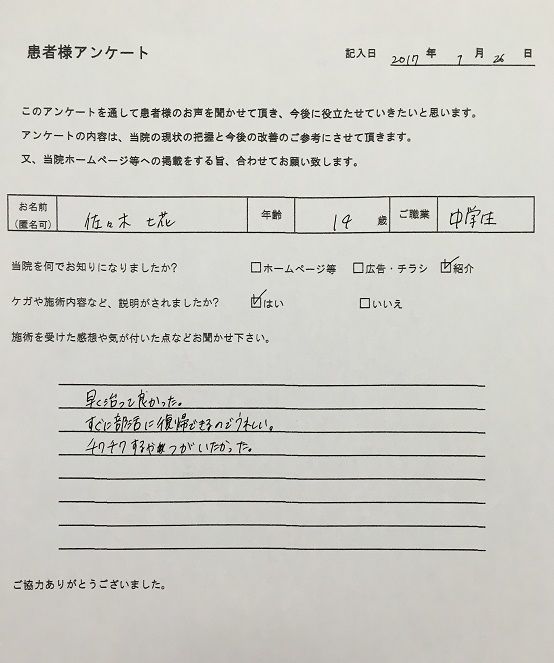 患者様アンケート
記入日 2017 年 7 月 26 日
このアンケートを通して患者様のお声を聞かせて頂き、今後に役立たせていきたいと思います。
アンケートの内容は、当院の現状の把握と今後の改善のご参考にさせて頂きます。
又、当院ホームページ等への掲載をする旨、合わせてお願い致します。
お名前(匿名可) 佐々木 七花 年齢 14 歳 ご職業 中学生
当院を何でお知りになりましたか? □ホームページ等 □広告・チラシ ☑紹介
ケガや施術内容など、説明がされましたか? ☑はい □いいえ
施術を受けた感想や気が付いた点などお聞かせ下さい。
早く治って良かった。
すぐに部活に復帰できるのでうれしい。
チクチクするやつがいたかった。
ご協力ありがとうございました。